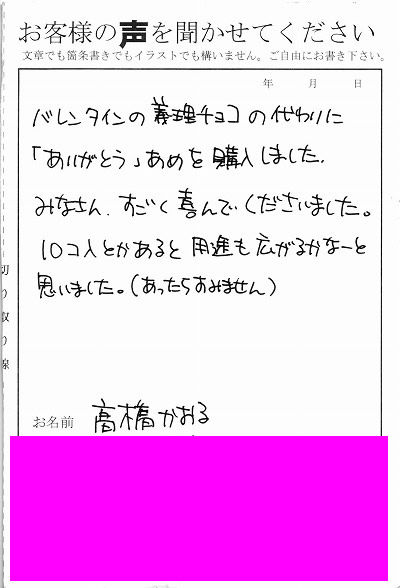 お客様の声を聞かせてください
文章でも箇条書きでもイラストでも構いません。ご自由にお書き下さい。
年 月 日
バレンタインの義理チョコの代わりに
「ありがとう」あめを購入しました。
みなさん、すごく喜んでくださいました。
10コ入とかあると用途も広がるかなーと
思いました。(あったらすみません)
切り取り線
お名前 高橋かおる